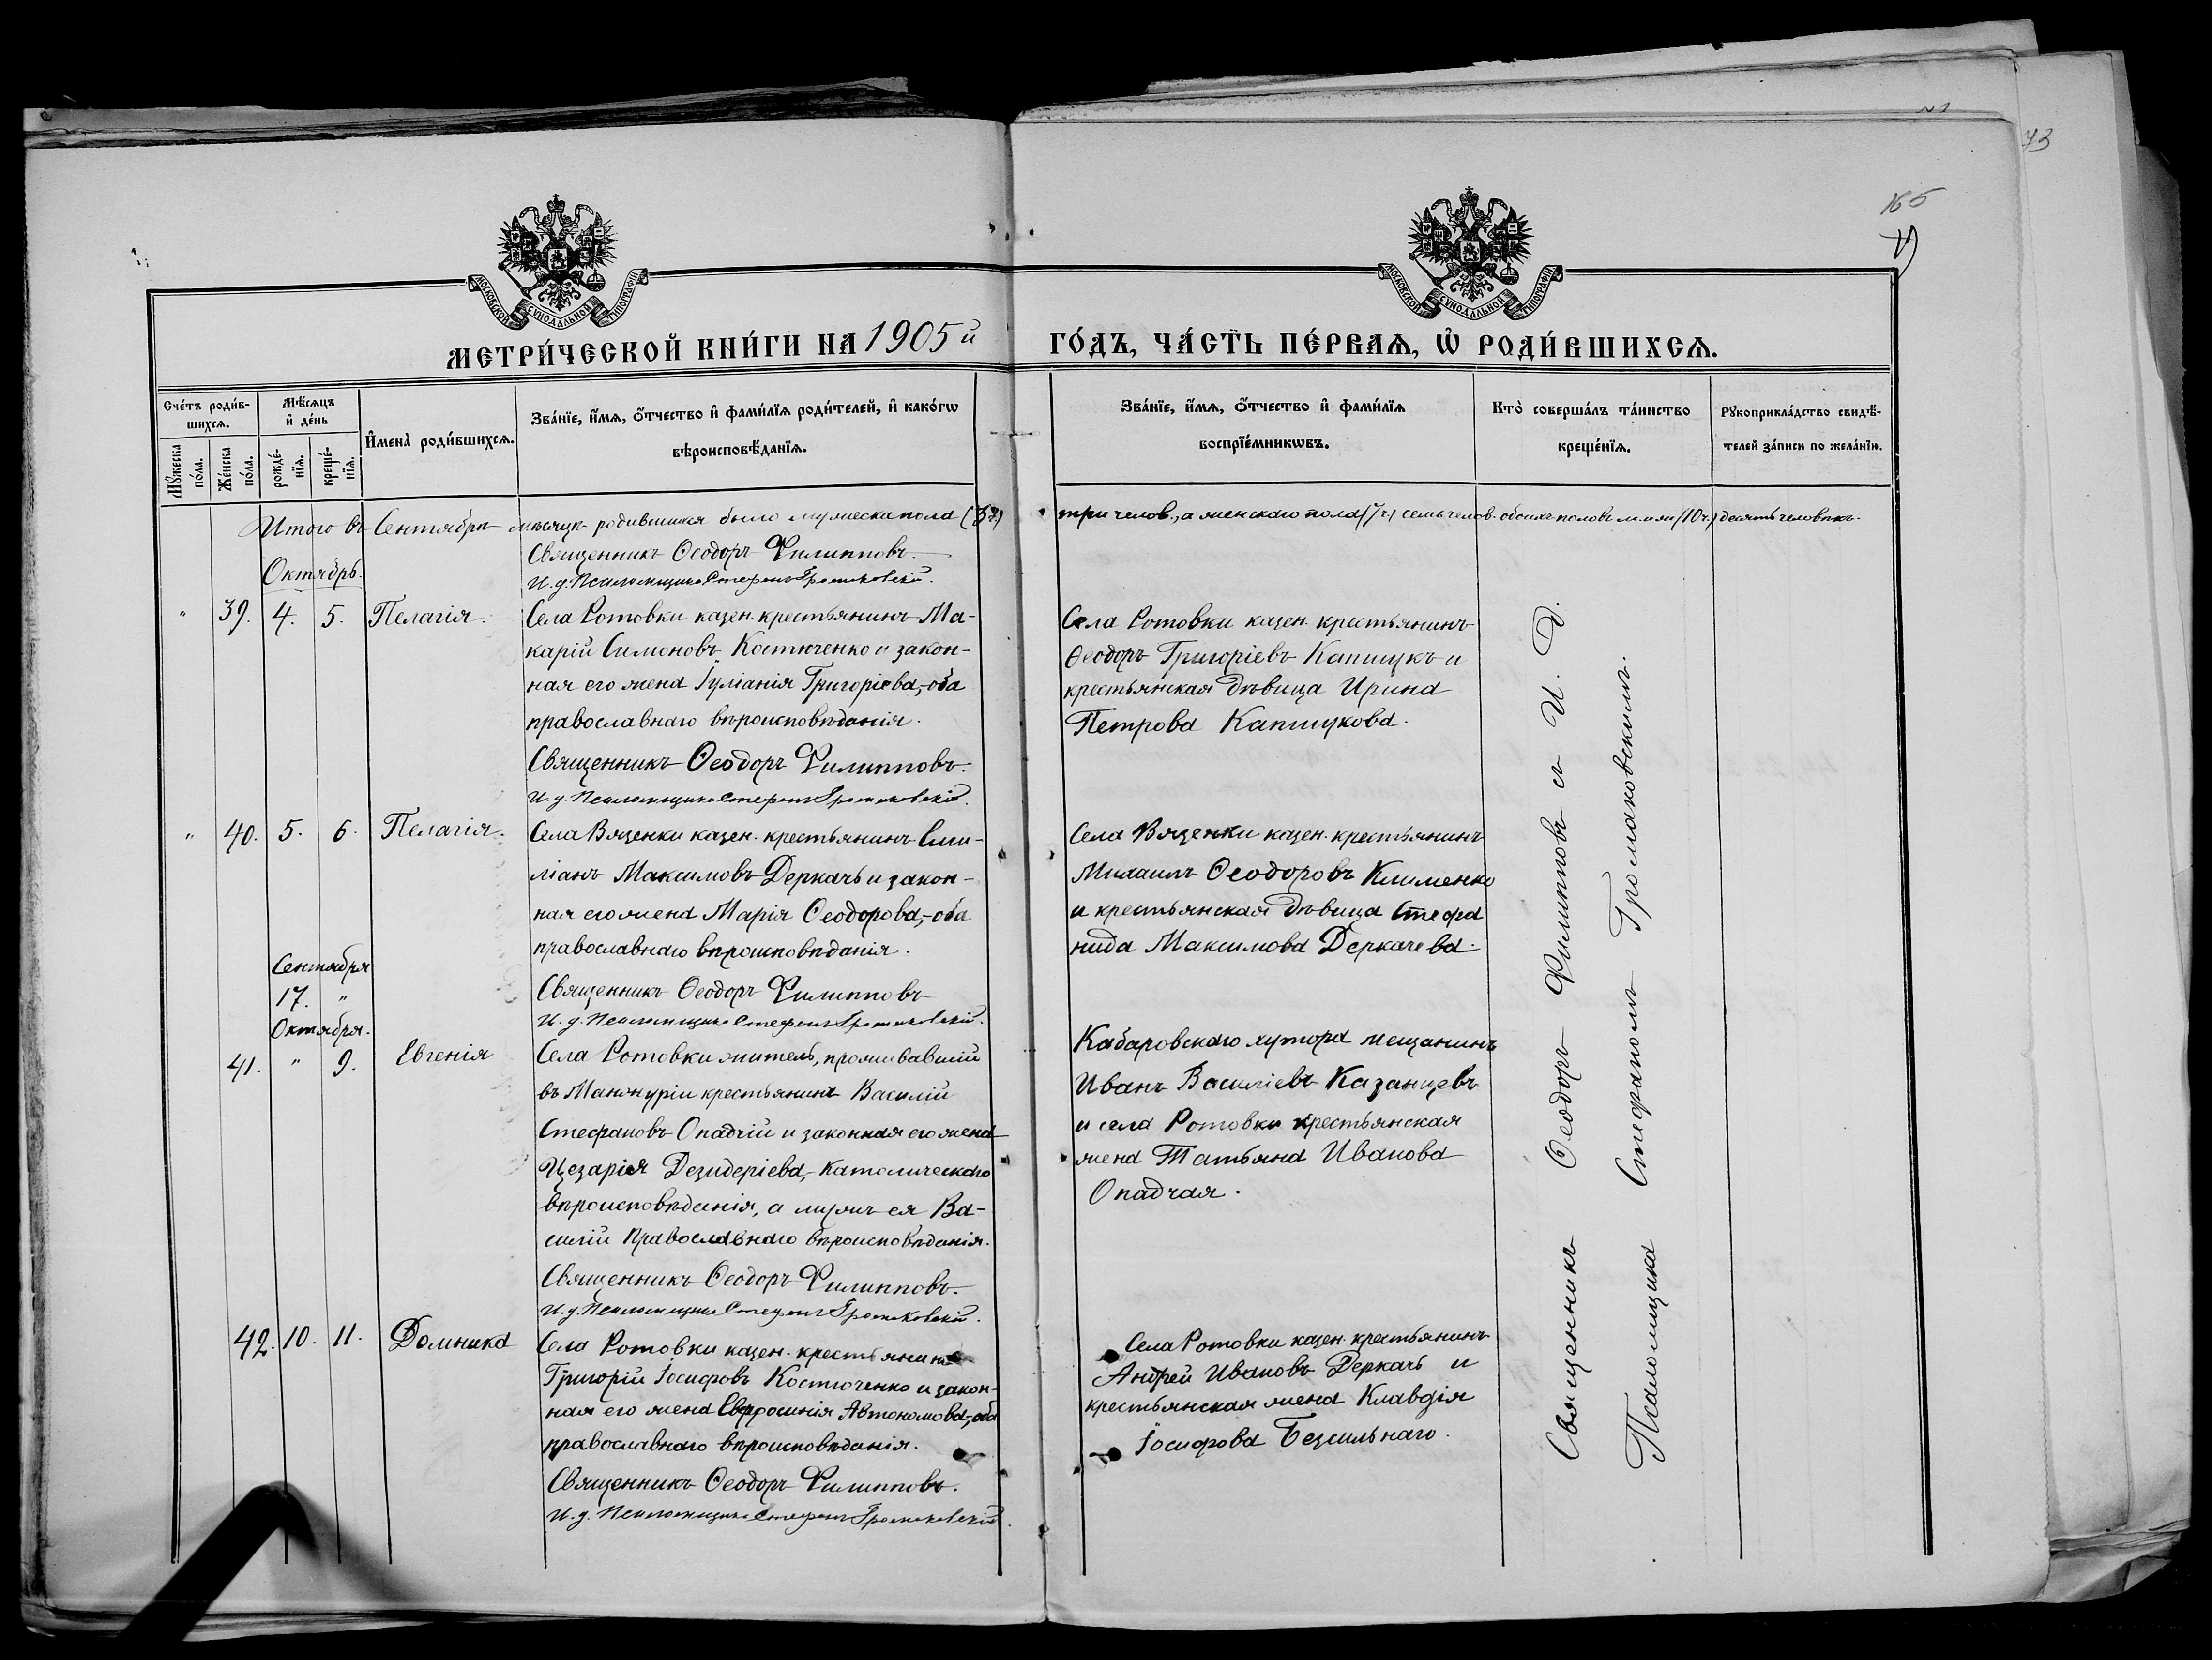 73
165
МОСКОВСКОЙ СѴНОДАЛЬНОЙ ТИПОГРАФІИ
МОСКОВСКОЙ СѴНОДАЛЬНОЙ ТИПОГРАФІИ
МЕТРИ́ЧЕСКОЙ КНИ́ГИ НА 1905й ГО́ДЪ, ЧА́СТЬ ПЕ́РВАѦ, Ѡ҆ РОДИ́ВШИХСѦ.
Сче́тъ роди́в-
шихсѧ.
Мꙋ́жеска по́ла.
Же́нска по́ла.
Мѣ́сѧцъ
и҆ де́нь
рожде́-
нїѧ.
креще́-
нїѧ.
И҆мена̀ роди́вшихсѧ.
Зва́нїе, и҆́мѧ, ѻ҆́тчество и҆ фами́лїѧ роди́телей, и҆ како́гѡ
вѣроисповѣ́данїѧ.
Зва́нїе, и҆́мѧ, ѻ҆́тчество и҆ фами́лїѧ
воспрїе́мникѡвъ.
Кто̀ соверша́лъ та́инство
креще́нїѧ.
Рꙋкоприкла́дство свидѣ́-
телей за́писи по жела́нїю.
Итого въ Сентябрѣ мѣсяцѣ родившихся было мужеска пола (3 ч.) три челов., а женскаго пола (7 ч.) семь челов. обоихъ половъ (10 ч.) десять человѣкъ.
Священникъ Ѳеодоръ Филипповъ.
И. д. Псаломщика Стефанъ Громаковскій.
Октябрь.
" 39. 4. 5. Пелагія.
Села Ротовки казен. крестьянинъ Ма-
карій Симоновъ Костюченко и закон-
ная его жена Іуліанія Григоріева,-оба
православнаго вѣроисповѣданія.
Священникъ Ѳеодоръ Филипповъ.
И. д. Псаломщика Стефанъ Громаковскій.
Села Ротовки казен. крестьянинъ
Ѳеодоръ Григоріевъ Капшукъ и
крестьянская дѣвица Ирина
Петрова Капшукова.
" 40. 5. 6. Пелагія.
Села Вязенки казен. крестьянинъ Еми-
ліанъ Максимовъ Деркачь и закон-
ная его жена Марія Ѳеодорова,-оба
православнаго вѣроисповѣданія.
Священникъ Ѳеодоръ Филипповъ
И. д. Псаломщика Стефанъ Громаковскій.
Села Вязенки казен. крестьянинъ
Михаилъ Ѳеодоровъ Клименко
и крестьянская дѣвица Стефа
нида Максимова Деркачева.
Сентября
17. "
Октября.
41. " 9. Евгенія
Села Ротовки житель, проживавшій
въ Манчжуріи крестьянинъ Василій
Стефановъ Опадчій и законная его жена
Цезарія Дезидеріева,-католическаго
вѣроисповѣданія, а мужъ ея Ва-
силій православнаго вѣроисповѣданія.
Священникъ Ѳеодоръ Филипповъ.
И. д. Псаломщика Стефанъ Громаковскій.
Кабаровскаго хутора мещанинъ
Иванъ Василіевъ Казанцевъ
и села Ротовки крестьянская
жена Татьяна Иванова
Опадчая.
42. 10. 11. Домника
Села Ротовки казен. крестьянинъ
Григорій Іосифовъ Костюченко и закон-
ная его жена Евфросинія Автономова,-оба
православнаго вѣроисповѣданія.
Священникъ Ѳеодоръ Филипповъ.
И. д. Псаломщика Стефанъ Громаковскій.
Села Ротовки казен. крестьянинъ
Андрей Ивановъ Деркачь и
крестьянская жена Клавдія
Іосифова Безсильнаго.
Священникъ Ѳеодоръ Филипповъ съ И. Д.
Псаломщика Стефаномъ Громаковскимъ.